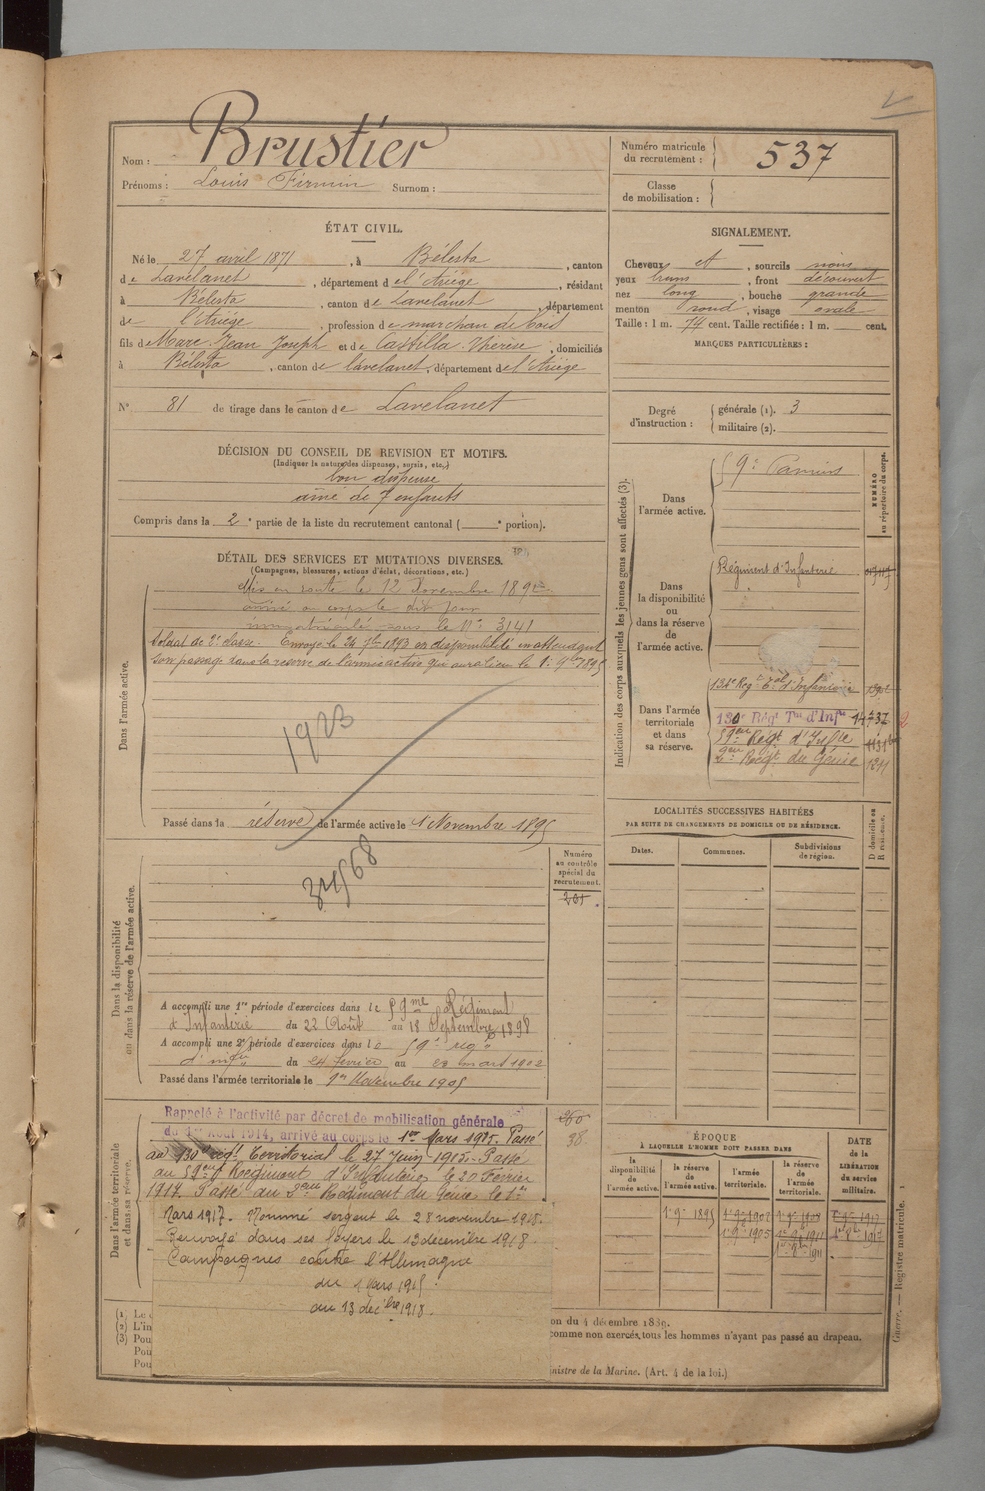 Nom : Brustier
Prénoms : Louis Firmin Surnom :
Numéro matricule du recrutement : 537
Classe de mobilisation :
ÉTAT CIVIL.
Né le 27 avril 1871, à Bélesta, canton
de Lavelanet, département de l'Ariége, résidant
à Bélesta, canton de Lavelanet, département
de l'Ariége, profession de marchan de bois
fils de Marc Jean Joseph et de Castilla Thérèse, domiciliés
à Bélesta, canton de lavelanet, département de l'Ariége
N° 81 de tirage dans le canton de Lavelanet
SIGNALEMENT.
Cheveux et, sourcils noirs
yeux bruns, front découvert
nez long, bouche grande
menton rond, visage ovale
Taille : 1 m. 74 cent. Taille rectifiée : 1 m. cent.
MARQUES PARTICULIÈRES :
Degré d'instruction : générale (1). 3
militaire (2).
DÉCISION DU CONSEIL DE REVISION ET MOTIFS.
(Indiquer la nature des dispenses, sursis, etc.)
bon dispense
ainé de 7 enfants
Compris dans la 2e partie de la liste du recrutement cantonal ( e portion).
DÉTAIL DES SERVICES ET MUTATIONS DIVERSES.
(Campagnes, blessures, actions d'éclat, décorations, etc.)
Dans l'armée active.
Mis en route le 12 Novembre 1892
arrivé au corps le dit jour
immatriculé sous le N° 3141
Soldat de 2e classe. Envoyé le 24 7bre 1893 en disponibilité en attendant
son passage dans la réserve de l'armée active qui aura lieu le 1er 9bre 1895
1903
Passé dans la réserve de l'armée active le 1 Novembre 1895
Dans la disponibilité ou dans la réserve de l'armée active.
Numéro au contrôle spécial du recrutement.
201
A accompli une 1re période d'exercices dans le 59me Régiment
d'Infanterie du 22 Août au 18 Septembre 1898
A accompli une 2e période d'exercices dans le 59e reg.
d'infie du 24 fevrier au 23 mars 1902
Passé dans l'armée territoriale le 1er Novembre 1905
Dans l'armée territoriale et dans sa réserve.
Rappelé à l'activité par décret de mobilisation générale
du 1er Août 1914, arrivé au corps le 1er Mars 1915. Passé
au 130e régt Territorial le 27 Juin 1915. Passé
au 59eme Regiment d'Infanterie le 20 Février
1917. Passé au 2eme Régiment du Génie le 1er
Mars 1917. Nommé sergent le 28 novembre 1918.
Renvoyé dans ses foyers le 13 decembre 1918.
Campagnes contre l'Allemagne
du 1 Mars 1915
au 13 décbre 1918.
260
38
Indication des corps auxquels les jeunes gens sont affectés (3).
NUMÉRO au répertoire du corps.
Dans l'armée active.
59e Pamiers
Dans la disponibilité ou dans la réserve de l'armée active.
Régiment d'Infanterie
Dans l'armée territoriale et dans sa réserve.
134e Reg. Tal d'Infanterie
130e Régt Tal d'Infie 14732
59eme Régt d'Infie
2eme Régt du Génie
LOCALITÉS SUCCESSIVES HABITÉES
PAR SUITE DE CHANGEMENTS DE DOMICILE OU DE RÉSIDENCE.
Dates. Communes. Subdivisions de région.
D domicile ou R résidence.
ÉPOQUE
À LAQUELLE L'HOMME DOIT PASSER DANS
la disponibilité de l'armée active. la réserve de l'armée active. l'armée territoriale. la réserve de l'armée territoriale.
DATE de la LIBÉRATION du service militaire.
1er 9bre 1895 1er 9bre 1902 1er 9bre 1908 1er 9bre 1917
1er 9bre 1905 1er 9bre 1911
Guerre. — Registre matricule. 1
(1) Le
(2) L'in
(3) Pou
Pou
Pou
on du 4 décembre 1889.
comme non exercés, tous les hommes n'ayant pas passé au drapeau.
inistre de la Marine. (Art. 4 de la loi.)